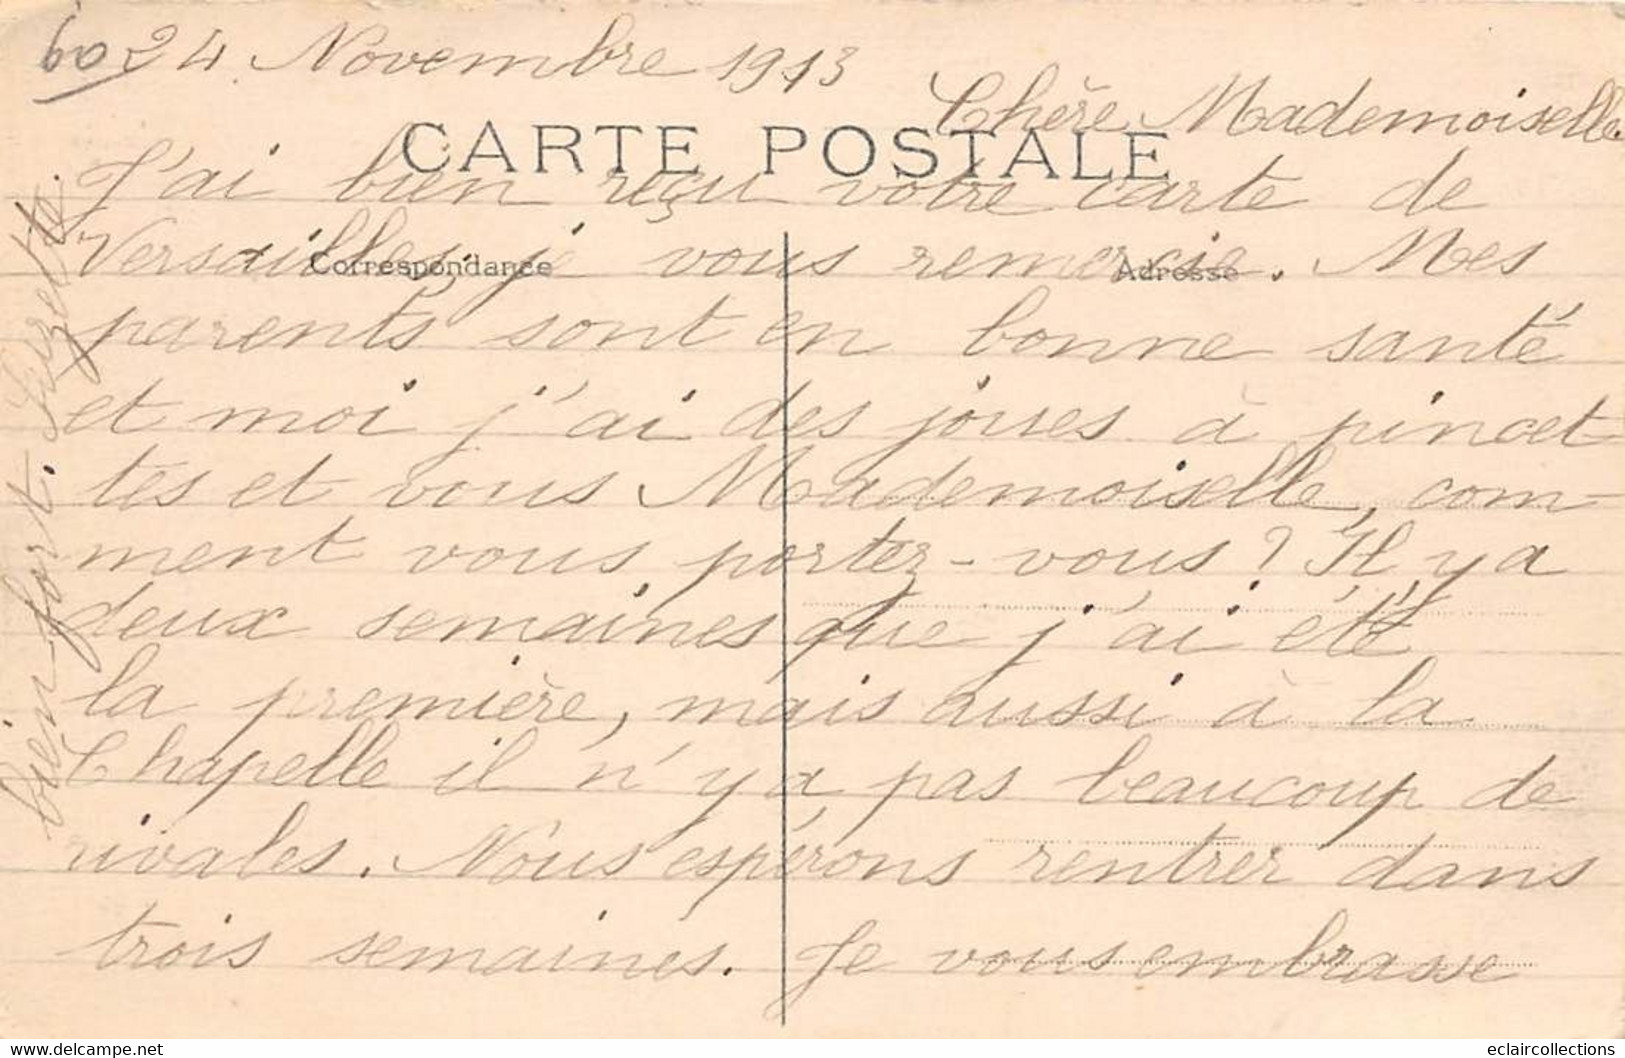 60
24 Novembre 1913
Chère Mademoiselle.
CARTE POSTALE
J'ai bien reçu votre carte de
Correspondance
Adresse
Versailles, je vous remercie. Mes
parents sont en bonne santé
et moi j'ai des joues à pincet
tes et vous Mademoiselle, com-
ment vous portez-vous ? Il y a
deux semaines que j'ai été
la première, mais aussi à la
Chapelle il n'y a pas beaucoup de
rivales. Nous espérons rentrer dans
trois semaines. Je vous embrasse
bien fort. Suzette.
www.delcampe.net
eclaircollections